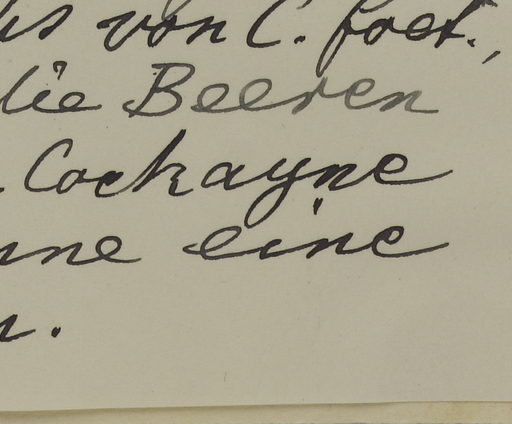 von C. foet.,
die Beeren
Cockayne
eine